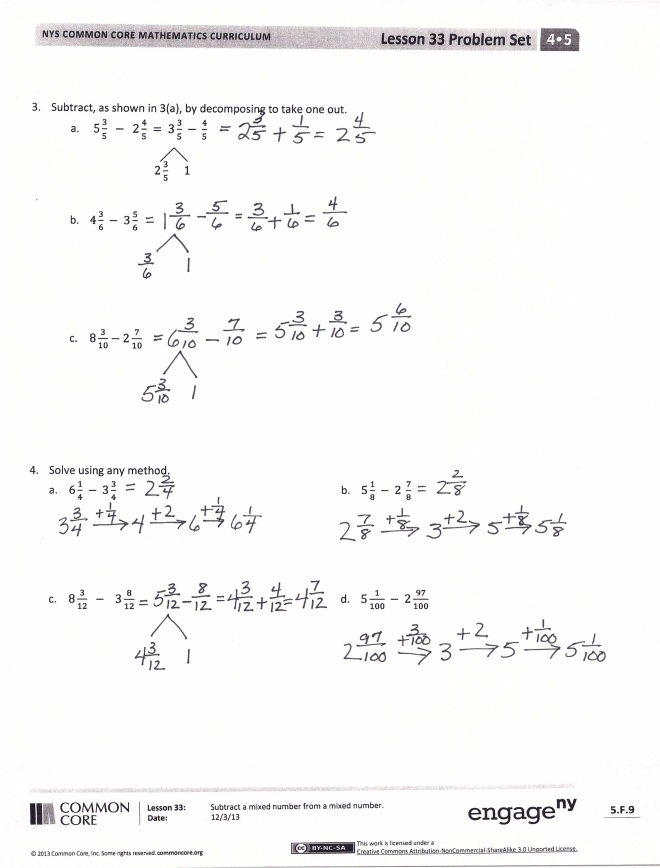 NYS COMMON CORE MATHEMATICS CURRICULUM Lesson 33 Problem Set 4•5
3. Subtract, as shown in 3(a), by decomposing to take one out.
a. 5 3/5 − 2 4/5 = 3 3/5 − 4/5 = 2 3/5 + 1/5 = 2 4/5
2 3/5 1
b. 4 3/6 − 3 5/6 = 1 3/6 − 5/6 = 3/6 + 1/6 = 4/6
3/6 1
c. 8 3/10 − 2 7/10 = 6 3/10 − 7/10 = 5 3/10 + 3/10 = 5 6/10
5 3/10 1
4. Solve using any method.
a. 6 1/4 − 3 3/4 = 2 2/4
3 3/4 +1/4 → 4 +2 → 6 +1/4 → 6 1/4
b. 5 1/8 − 2 7/8 = 2 2/8
2 7/8 +1/8 → 3 +2 → 5 +1/8 → 5 1/8
c. 8 3/12 − 3 8/12 = 5 3/12 − 8/12 = 4 3/12 + 4/12 = 4 7/12
4 3/12 1
d. 5 1/100 − 2 97/100
2 97/100 +3/100 → 3 +2 → 5 +1/100 → 5 1/100
COMMON CORE
Lesson 33: Subtract a mixed number from a mixed number.
Date: 12/3/13
engage ny
5.F.9
© 2013 Common Core, Inc. Some rights reserved. commoncore.org
cc BY-NC-SA
This work is licensed under a
Creative Commons Attribution-NonCommercial-ShareAlike 3.0 Unported License.